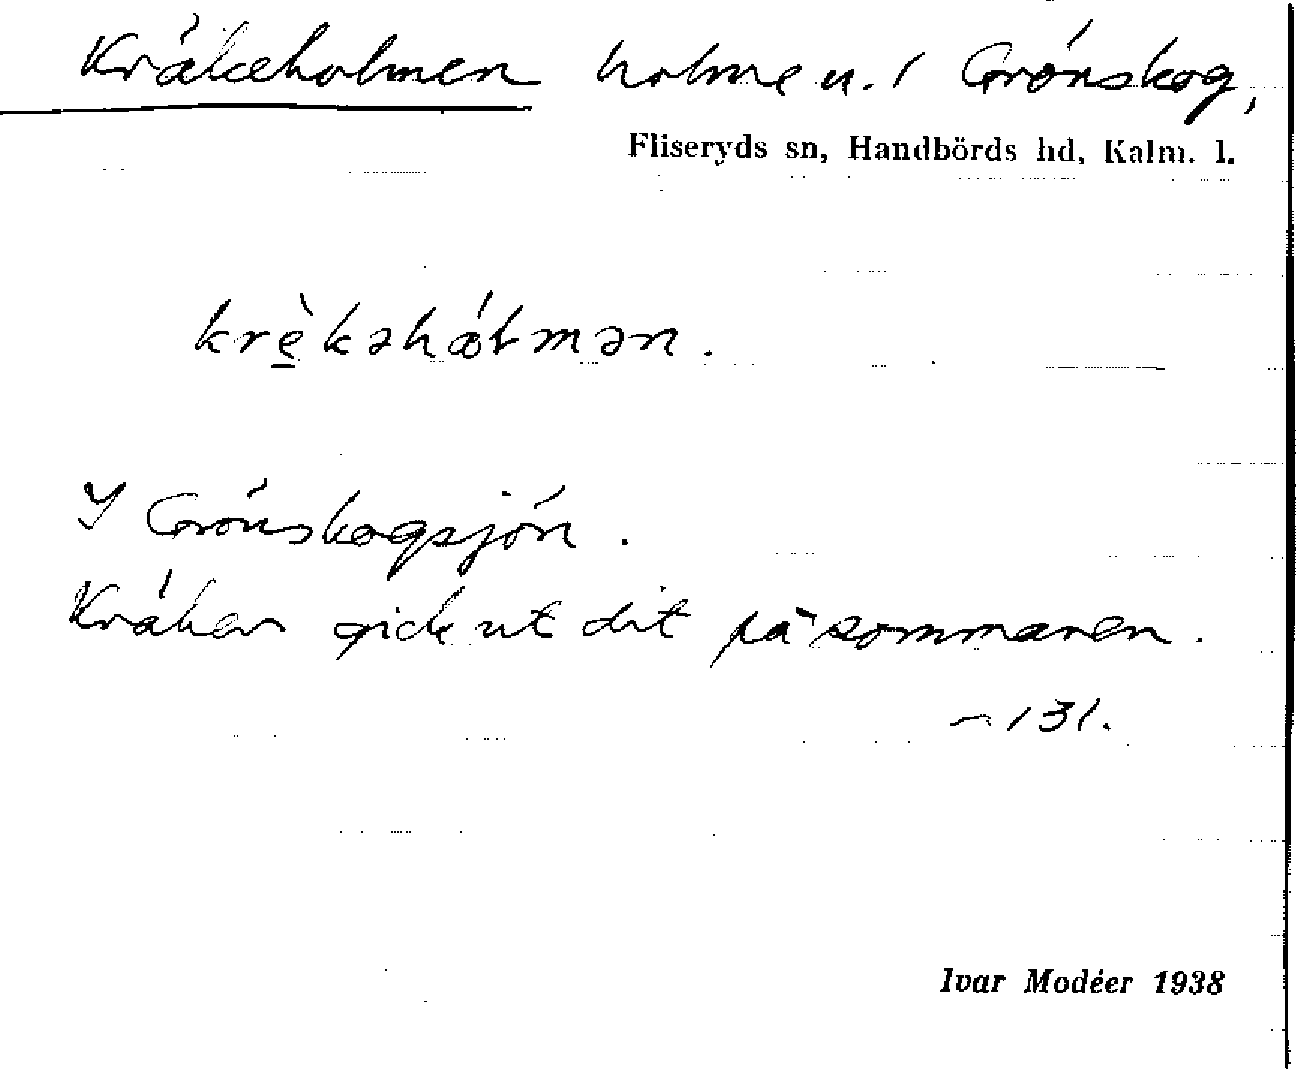 Kräkeholmen holme u. / Grönskog,
Fliseryds sn, Handbörds hd, Kalm. l.
krèkəhǽɫmən.
I Grönskogsjön.
Kräken gick ut dit på sommaren.
~ 131.
Ivar Modéer 1938